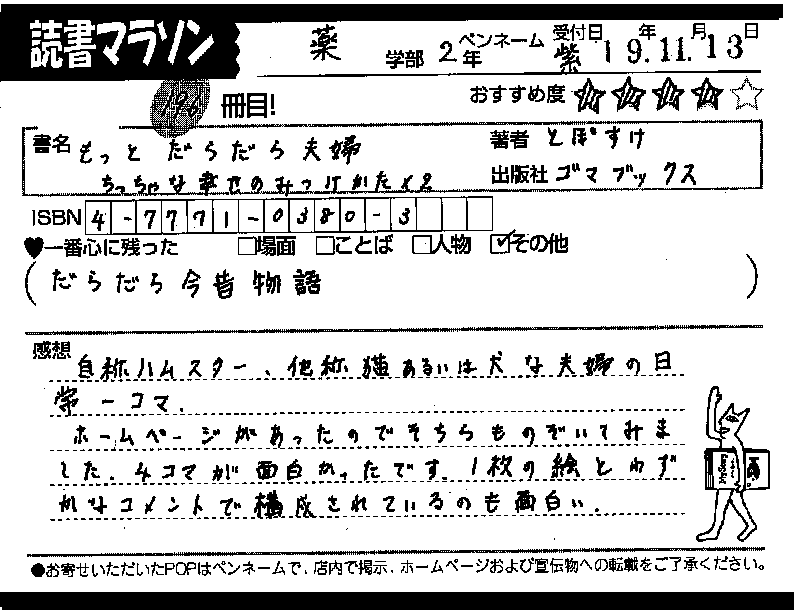 読書マラソン
薬 学部 2年 ペンネーム 紫 受付日 19年 11月 13日
196 冊目!
おすすめ度 ★★★★☆
書名 もっと だらだら夫婦
ちっちゃな幸せのみつけかた×2
著者 とぼすけ
出版社 ゴマブックス
ISBN 4-7771-0380-3
♥一番心に残った □場面 □ことば □人物 ☑その他
(だらだら今昔物語)
感想
自称ハムスター、他称猫あるいは犬な夫婦の日
常一コマ.
ホームページがあったのでそちらものぞいてみま
した. 4コマが面白かったです. 1枚の絵とわず
かなコメントで構成されているのも面白い.
●お寄せいただいたPOPはペンネームで、店内で掲示、ホームページおよび宣伝物への転載をご了承ください。